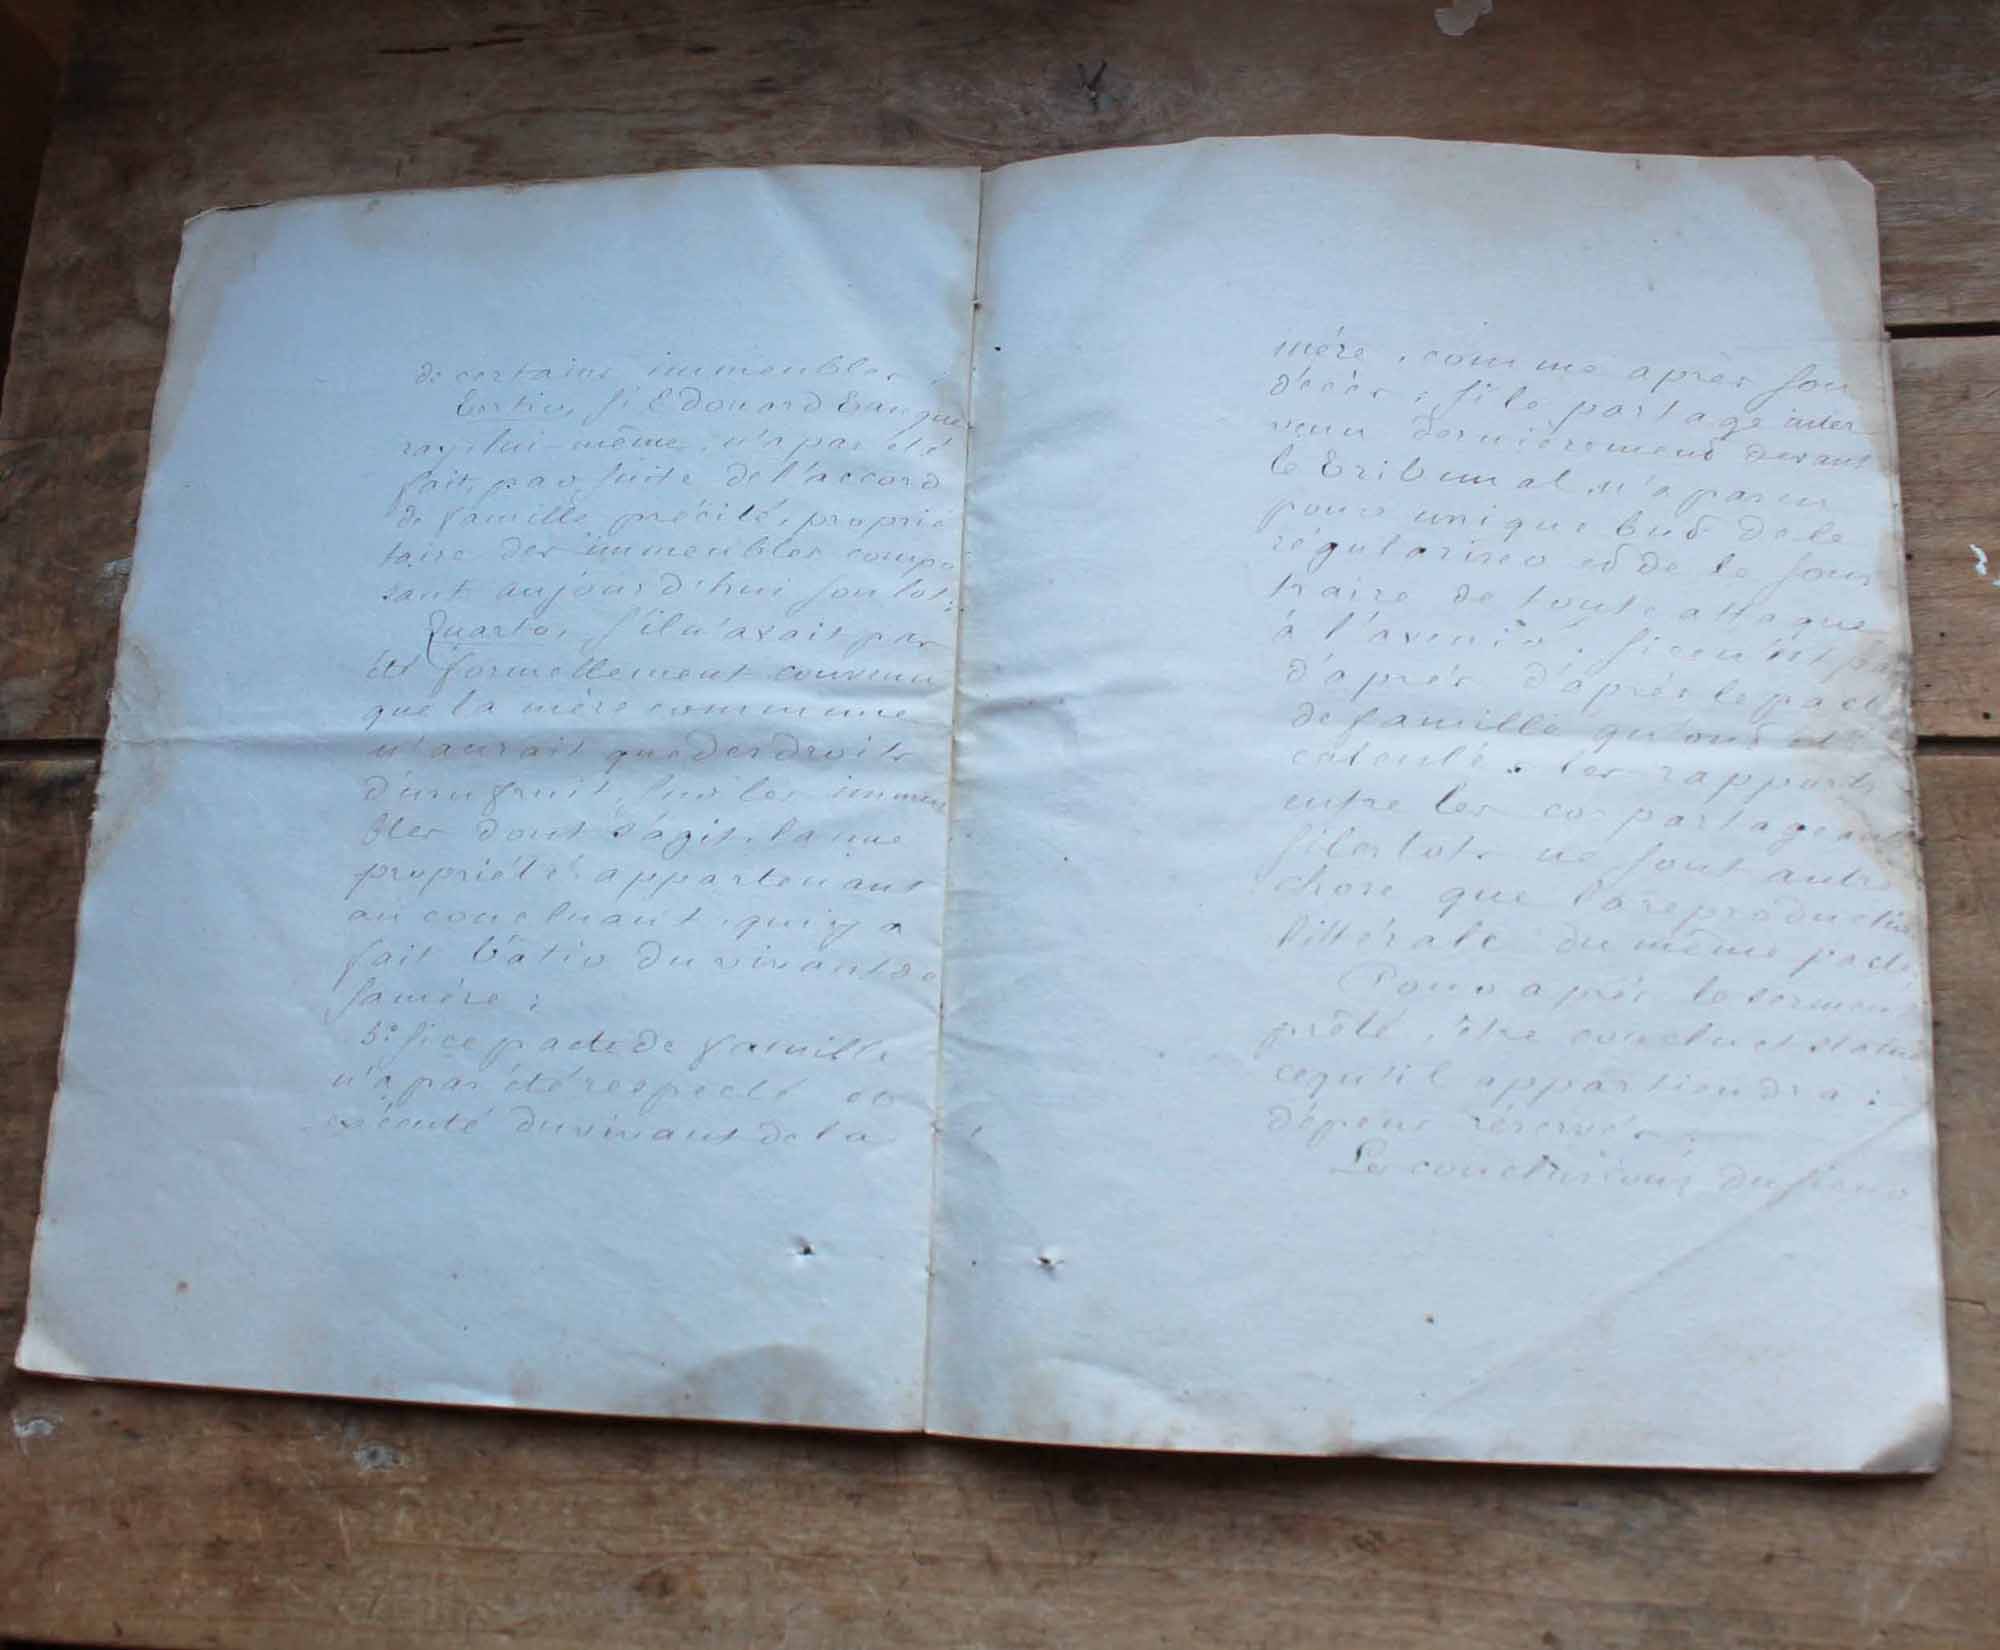 de certains immeubles ;
Tertio, si Edouard Tanque
ray lui-même, n'a pas été
fait, par suite de l'accord
de famille précité, proprié
taire des immeubles compo
sant aujourd'hui son lot ;
Quarto, s'il n'avait pas
été formellement convenu
que la mère commune
n'aurait que des droits
d'usufruit, sur les immeu
bles dont s'agit, la nue
propriété appartenant
au concluant, qui y a
fait bâtir du vivant de
sa mère ;
5° si ce pacte de famille
n'a pas été respecté et
exécuté du vivant de la
mère, comme après son
décès ; si le partage inter
venu dernièrement devant
le Tribunal n'a pas eu
pour unique but de le
régulariser et de le sous
traire de toute attaque
à l'avenir, si ce n'est pas
d'après d'après le pacte
de famille qu'ont été
calculés les rapports
entre les co-partageants
si les lots ne sont autre
chose que la reproduction
littérale du même pacte
Pour après le serment
prêté, être conclu et statué
ce qu'il appartiendra ;
dépens réservés.
Les conclusions du sieur